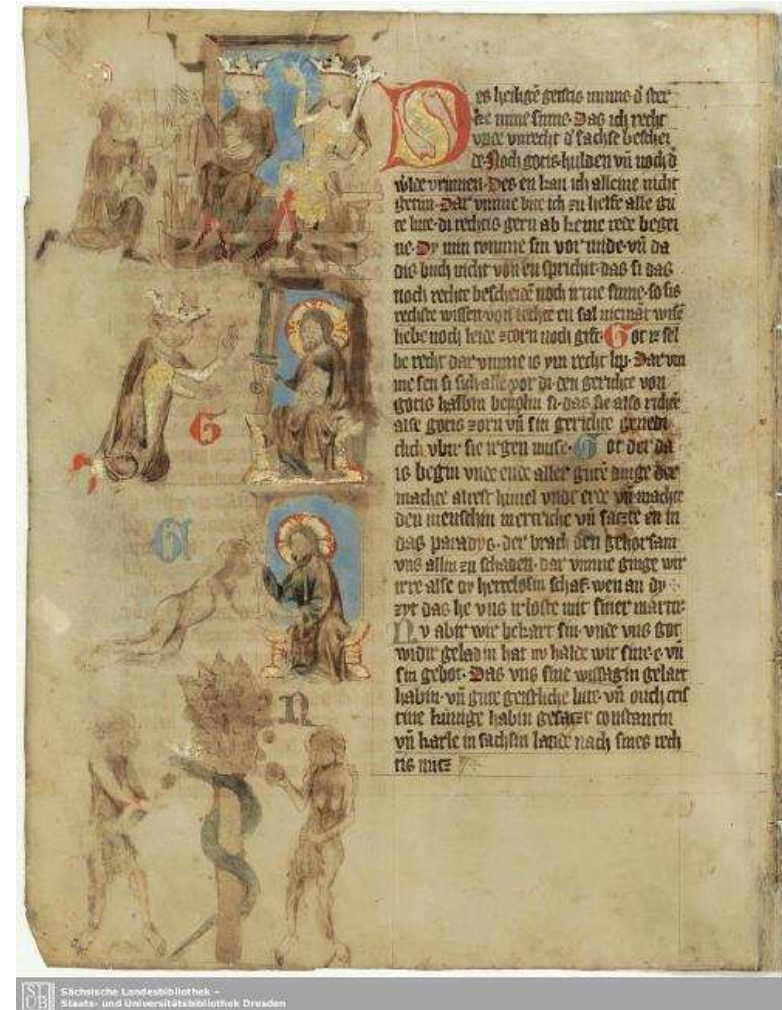 Des heiligē geistis minne d̄ ster
ke mine sinne. Das ich recht
vnde vnrecht d̄ sachse beschei
de. Noch gotis hulden vn̄ noch d̄
vrumen. Des en kan ich alleine nicht
getun. Dar vmme bite ich zu helfe alle gu
te lute. di rechtis gern ab keine rede begei
ne. Dy min tumme sin vor mide. vn̄ da
dis buch nicht von en spricht. das si das
noch rechte bescheidē noch irme sinne. so sis
rechte wissen. von rechte en sal nieman wisē
liebe noch leide zcorn noch gift. Got is sel
be recht dar vmme is ym recht lip. Dar vm
me sen si sich alle vor di den gerichte von
gotis halbin beuoln si. das sie also richtē
alse gotis zorn vn̄ sin gerichte genedi
clich vbir sie irgen muse. Got der da
is begin vnde ende aller gute dinge der
machte alrest himel vnde erde vn̄ machte
den menschin in ertriche vn̄ saczte en in
das paradys. der brach den gehorsam
vns allin zu schaden. dar vmme ginge wir
irre alse dy herrelosin schaf. wen an dy
zyt das he vns irloste mit siner martir.
Nv abir wir bekart sin. vnde vns got
widir geladin hat nv halde wir sine. e. vn̄
sin gebot. Das vns sine wissagin gelart
habin. vn̄ gute geistliche lute. vn̄ ouch cris
tine kunige habin gesaczt constantin
vn̄ karle in sachsin lande nach sines rech
tis nutz
G
G
N
SLUB
Sächsische Landesbibliothek –
Staats- und Universitätsbibliothek Dresden